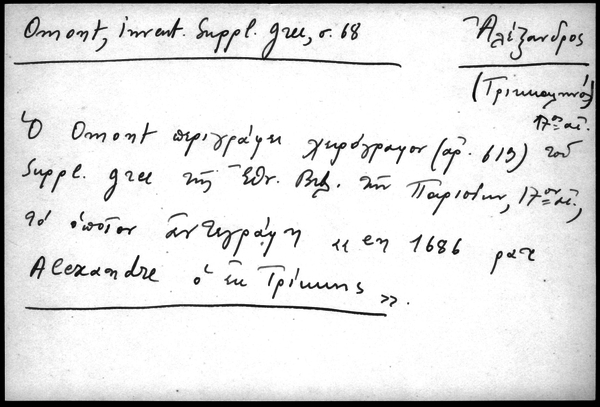 Omont, invent. Suppl. grec, σ. 68
Ἀλέξανδρος
(Τρικκαληνός)
17ος αἰ.
Ὁ Omont περιγράφει χειρόγραφον (ἀρ. 619) τοῦ
Suppl. grec τῆς Ἐθν. Βιβ. τῶν Παρισίων, 17ου αἰ.,
τό ὁποῖον ἀντεγράφη « en 1686 par
Alexandre ὁ ἐκ Τρίκκης ».